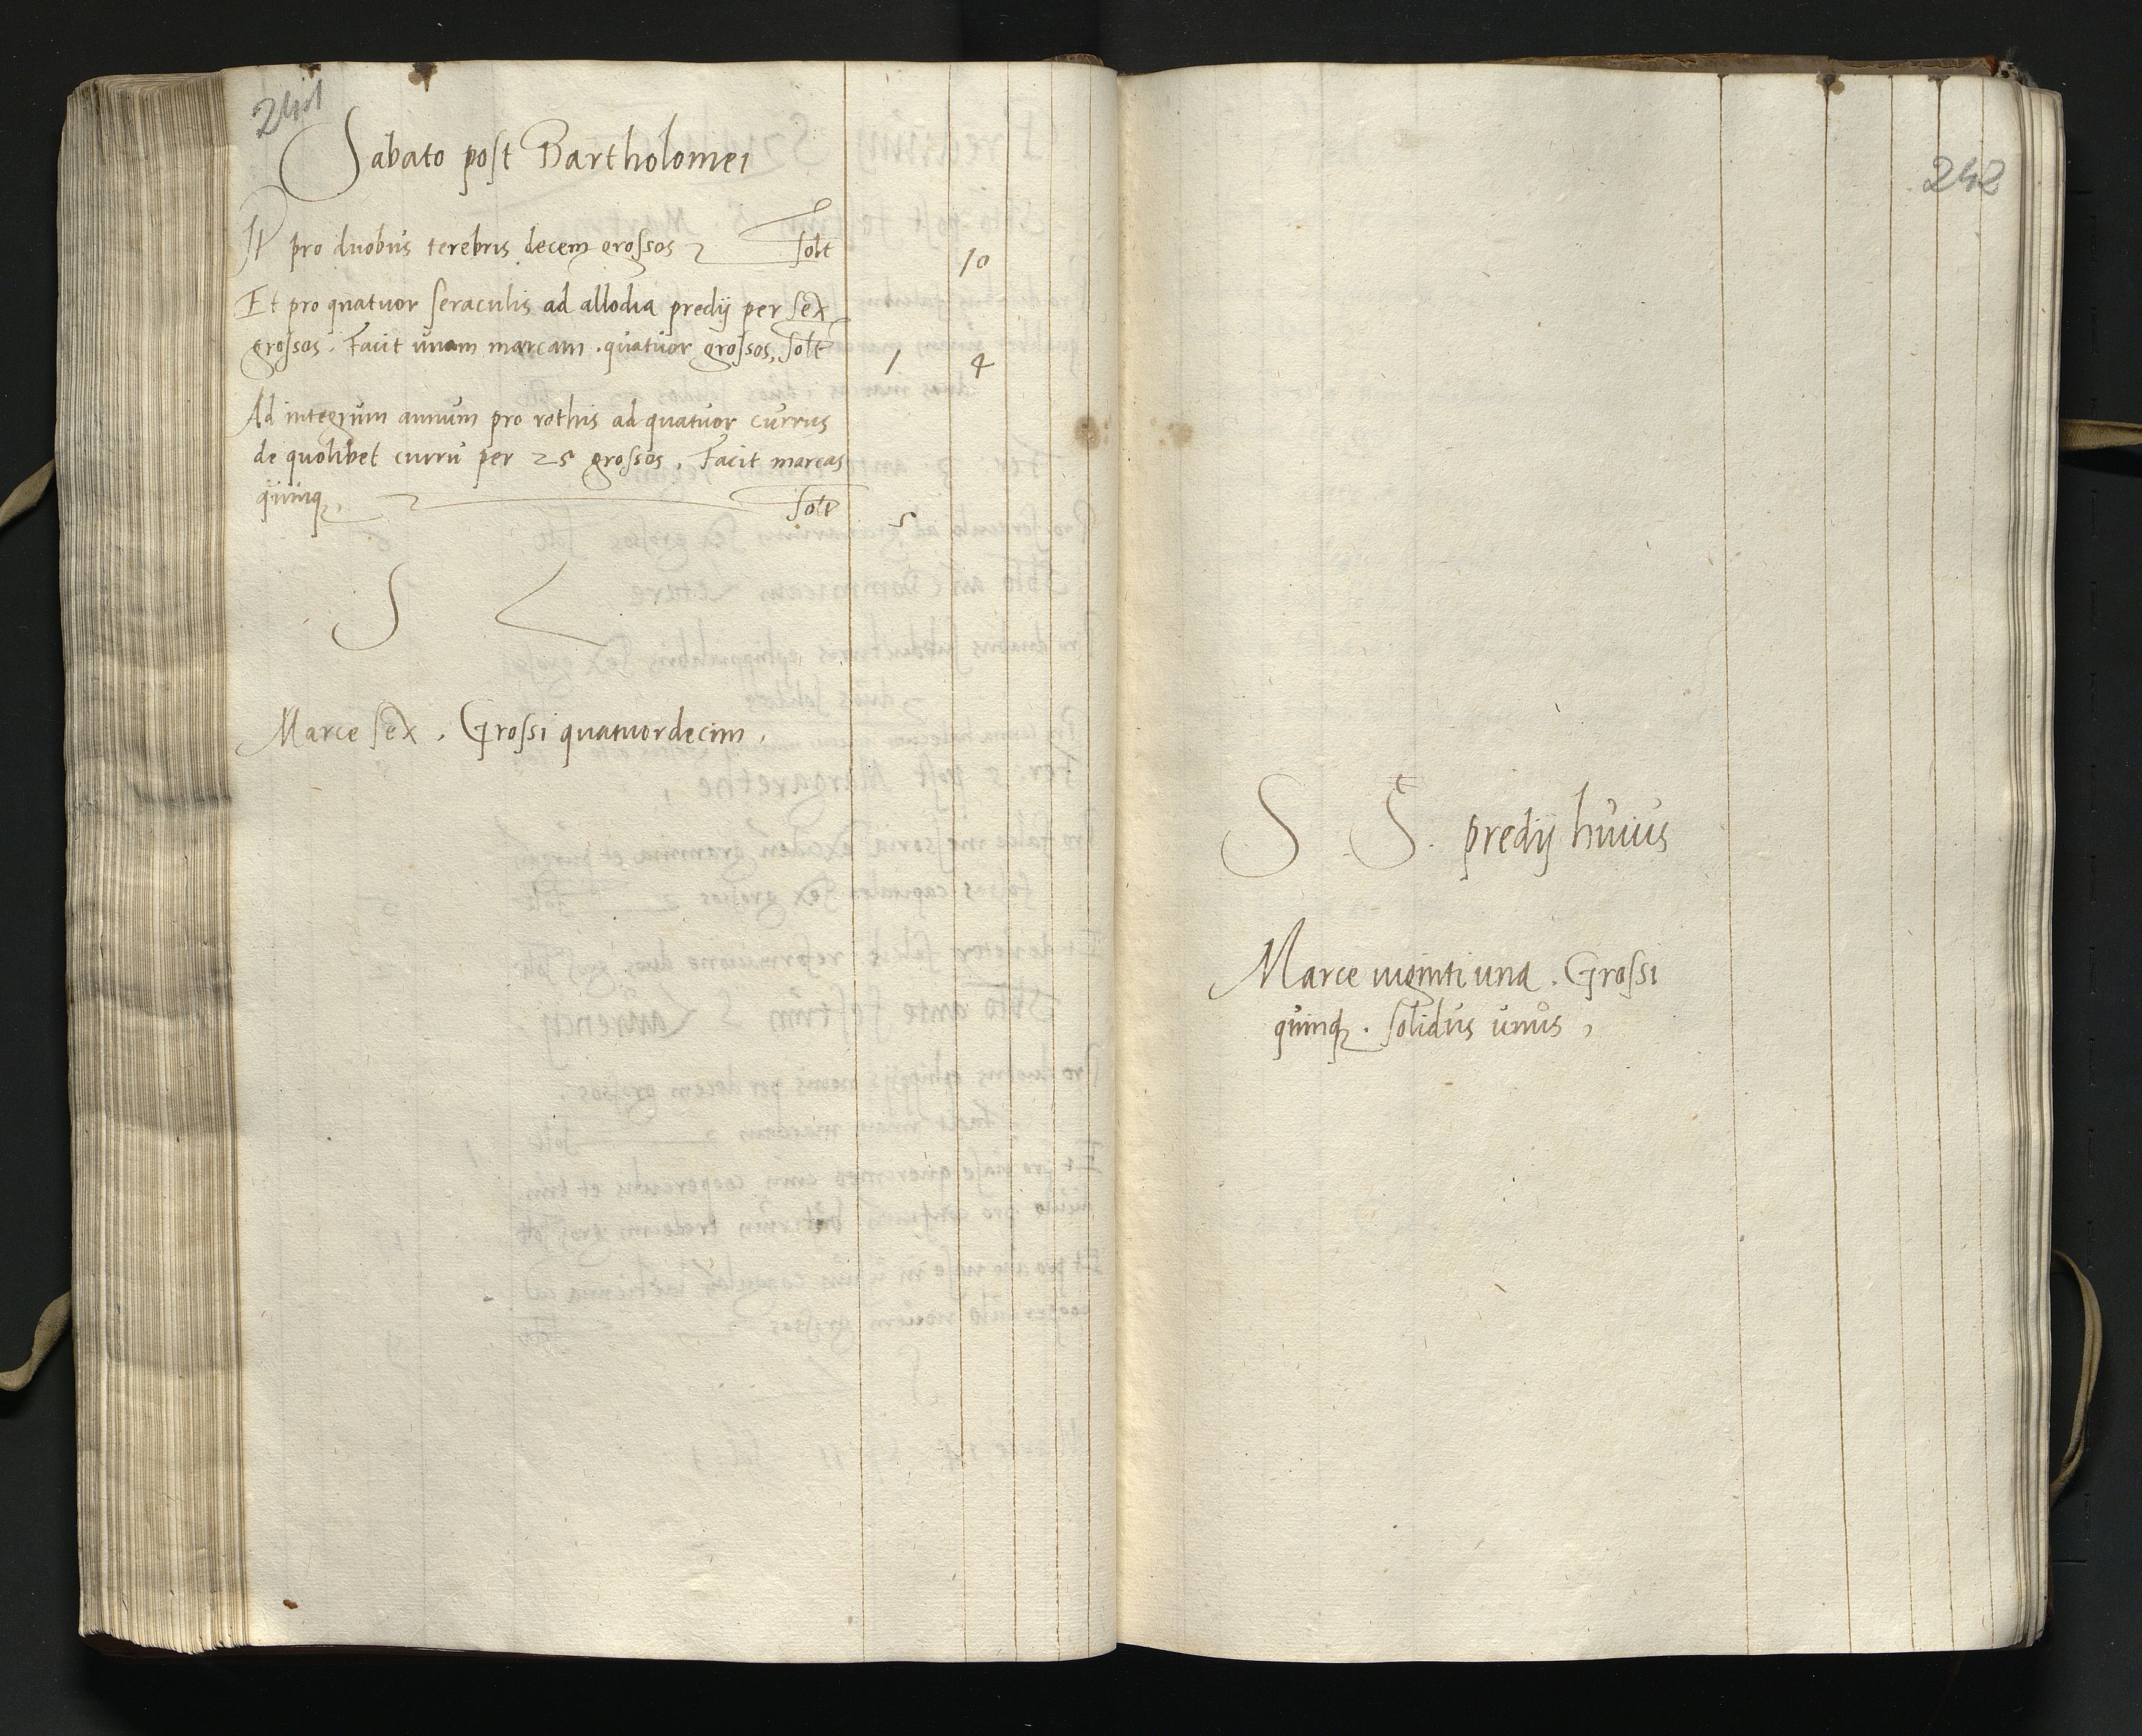 241
Sabato post Bartholomei
It pro duobus terebris decem grossos solt 10
Et pro quatuor seraculis ad allodia predij per sex
grossos. Facit unam marcam. quatuor grossos, solt 1 4
Ad integrum annum pro rothis ad quatuor currus
de quolibet curru per 25 grossos, Facit marcas
quinq, solt 5
S
Marce sex. Grossi quatuordecim,
242
S S. predij huius
Marce viginti una. Grossi
quinq. solidus unus,